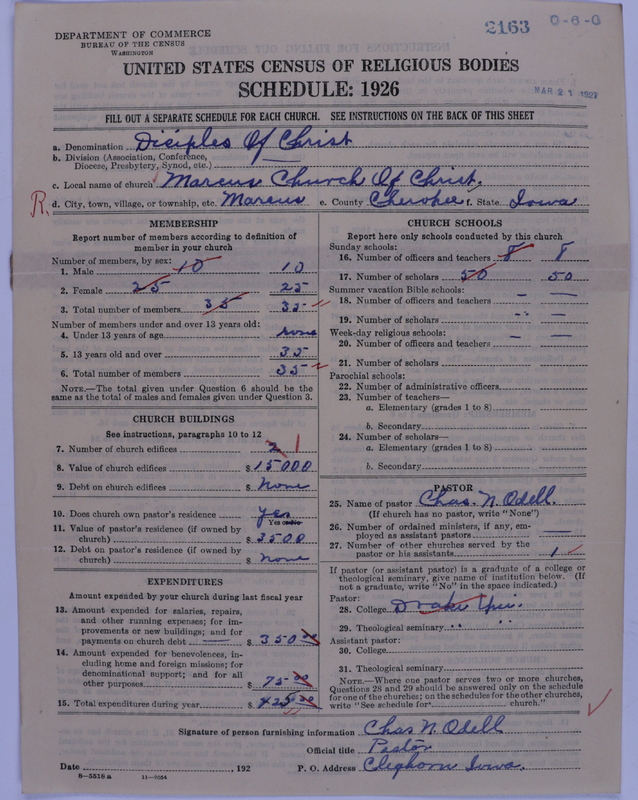 2163
0-6-0
DEPARTMENT OF COMMERCE
BUREAU OF THE CENSUS
WASHINGTON
UNITED STATES CENSUS OF RELIGIOUS BODIES
SCHEDULE: 1926
MAR 21 1927
FILL OUT A SEPARATE SCHEDULE FOR EACH CHURCH. SEE INSTRUCTIONS ON THE BACK OF THIS SHEET
a. Denomination Disciples Of Christ
b. Division (Association, Conference,
Diocese, Presbytery, Synod, etc.)
c. Local name of church Marcus Church Of Christ.
R. d. City, town, village, or township, etc. Marcus e. County Cherokee f. State Iowa
MEMBERSHIP
Report number of members according to definition of
member in your church
Number of members, by sex:
1. Male 10 10
2. Female 25 25
3. Total number of members 35 35
Number of members under and over 13 years old:
4. Under 13 years of age none
5. 13 years old and over 35
6. Total number of members 35
NOTE.—The total given under Question 6 should be the
same as the total of males and females given under Question 3.
CHURCH BUILDINGS
See instructions, paragraphs 10 to 12
7. Number of church edifices 2 1
8. Value of church edifices $ 15000
9. Debt on church edifices $ None
10. Does church own pastor's residence yes
Yes or No
11. Value of pastor's residence (if owned by
church) $ 3500
12. Debt on pastor's residence (if owned by
church) $ None
EXPENDITURES
Amount expended by your church during last fiscal year
13. Amount expended for salaries, repairs,
and other running expenses; for im-
provements or new buildings; and for
payments on church debt — $ 350.00
14. Amount expended for benevolences, in-
cluding home and foreign missions; for
denominational support; and for all
other purposes $ 75.00
15. Total expenditures during year $ 425.00
CHURCH SCHOOLS
Report here only schools conducted by this church
Sunday schools:
16. Number of officers and teachers 8 8
17. Number of scholars 50 50
Summer vacation Bible schools:
18. Number of officers and teachers — —
19. Number of scholars " —
Week-day religious schools:
20. Number of officers and teachers — —
21. Number of scholars
Parochial schools:
22. Number of administrative officers
23. Number of teachers—
a. Elementary (grades 1 to 8)
b. Secondary
24. Number of scholars—
a. Elementary (grades 1 to 8)
b. Secondary
PASTOR
25. Name of pastor Chas. N. Odell.
(If church has no pastor, write "None")
26. Number of ordained ministers, if any, em-
ployed as assistant pastors —
27. Number of other churches served by the
pastor or his assistants 1
If pastor (or assistant pastor) is a graduate of a college or
theological seminary, give name of institution below. (If
not a graduate, write "No" in the space indicated.)
Pastor:
28. College Drake Uni.
29. Theological seminary " "
Assistant pastor:
30. College
31. Theological seminary
NOTE.—Where one pastor serves two or more churches,
Questions 28 and 29 should be answered only on the schedule
for one of the churches; on the schedules for the other churches,
write "See schedule for church."
Signature of person furnishing information Chas N. Odell
Official title Pastor
Date , 192 P. O. Address Cleghorn Iowa.
8-5518 a 11-9554